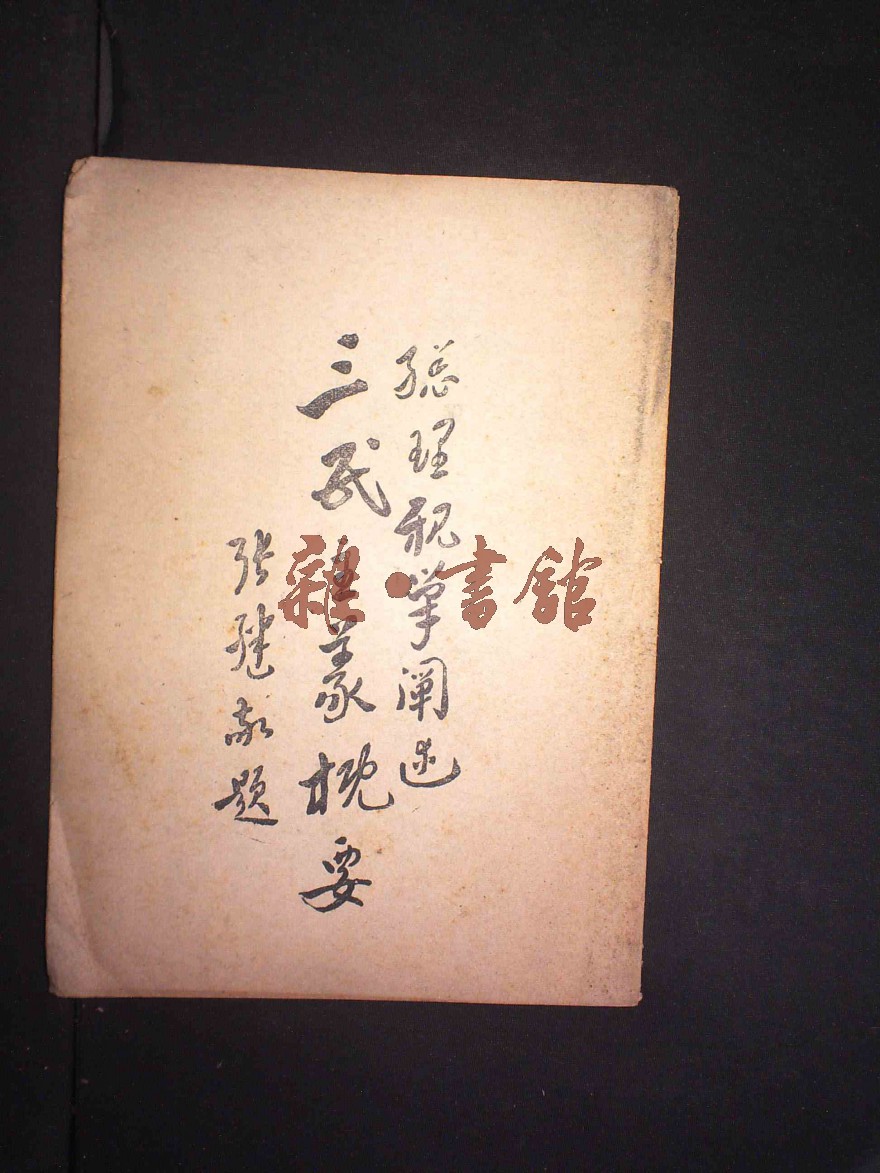 總理親筆闡述
三民主義概要
張繼敬題
雜•書館